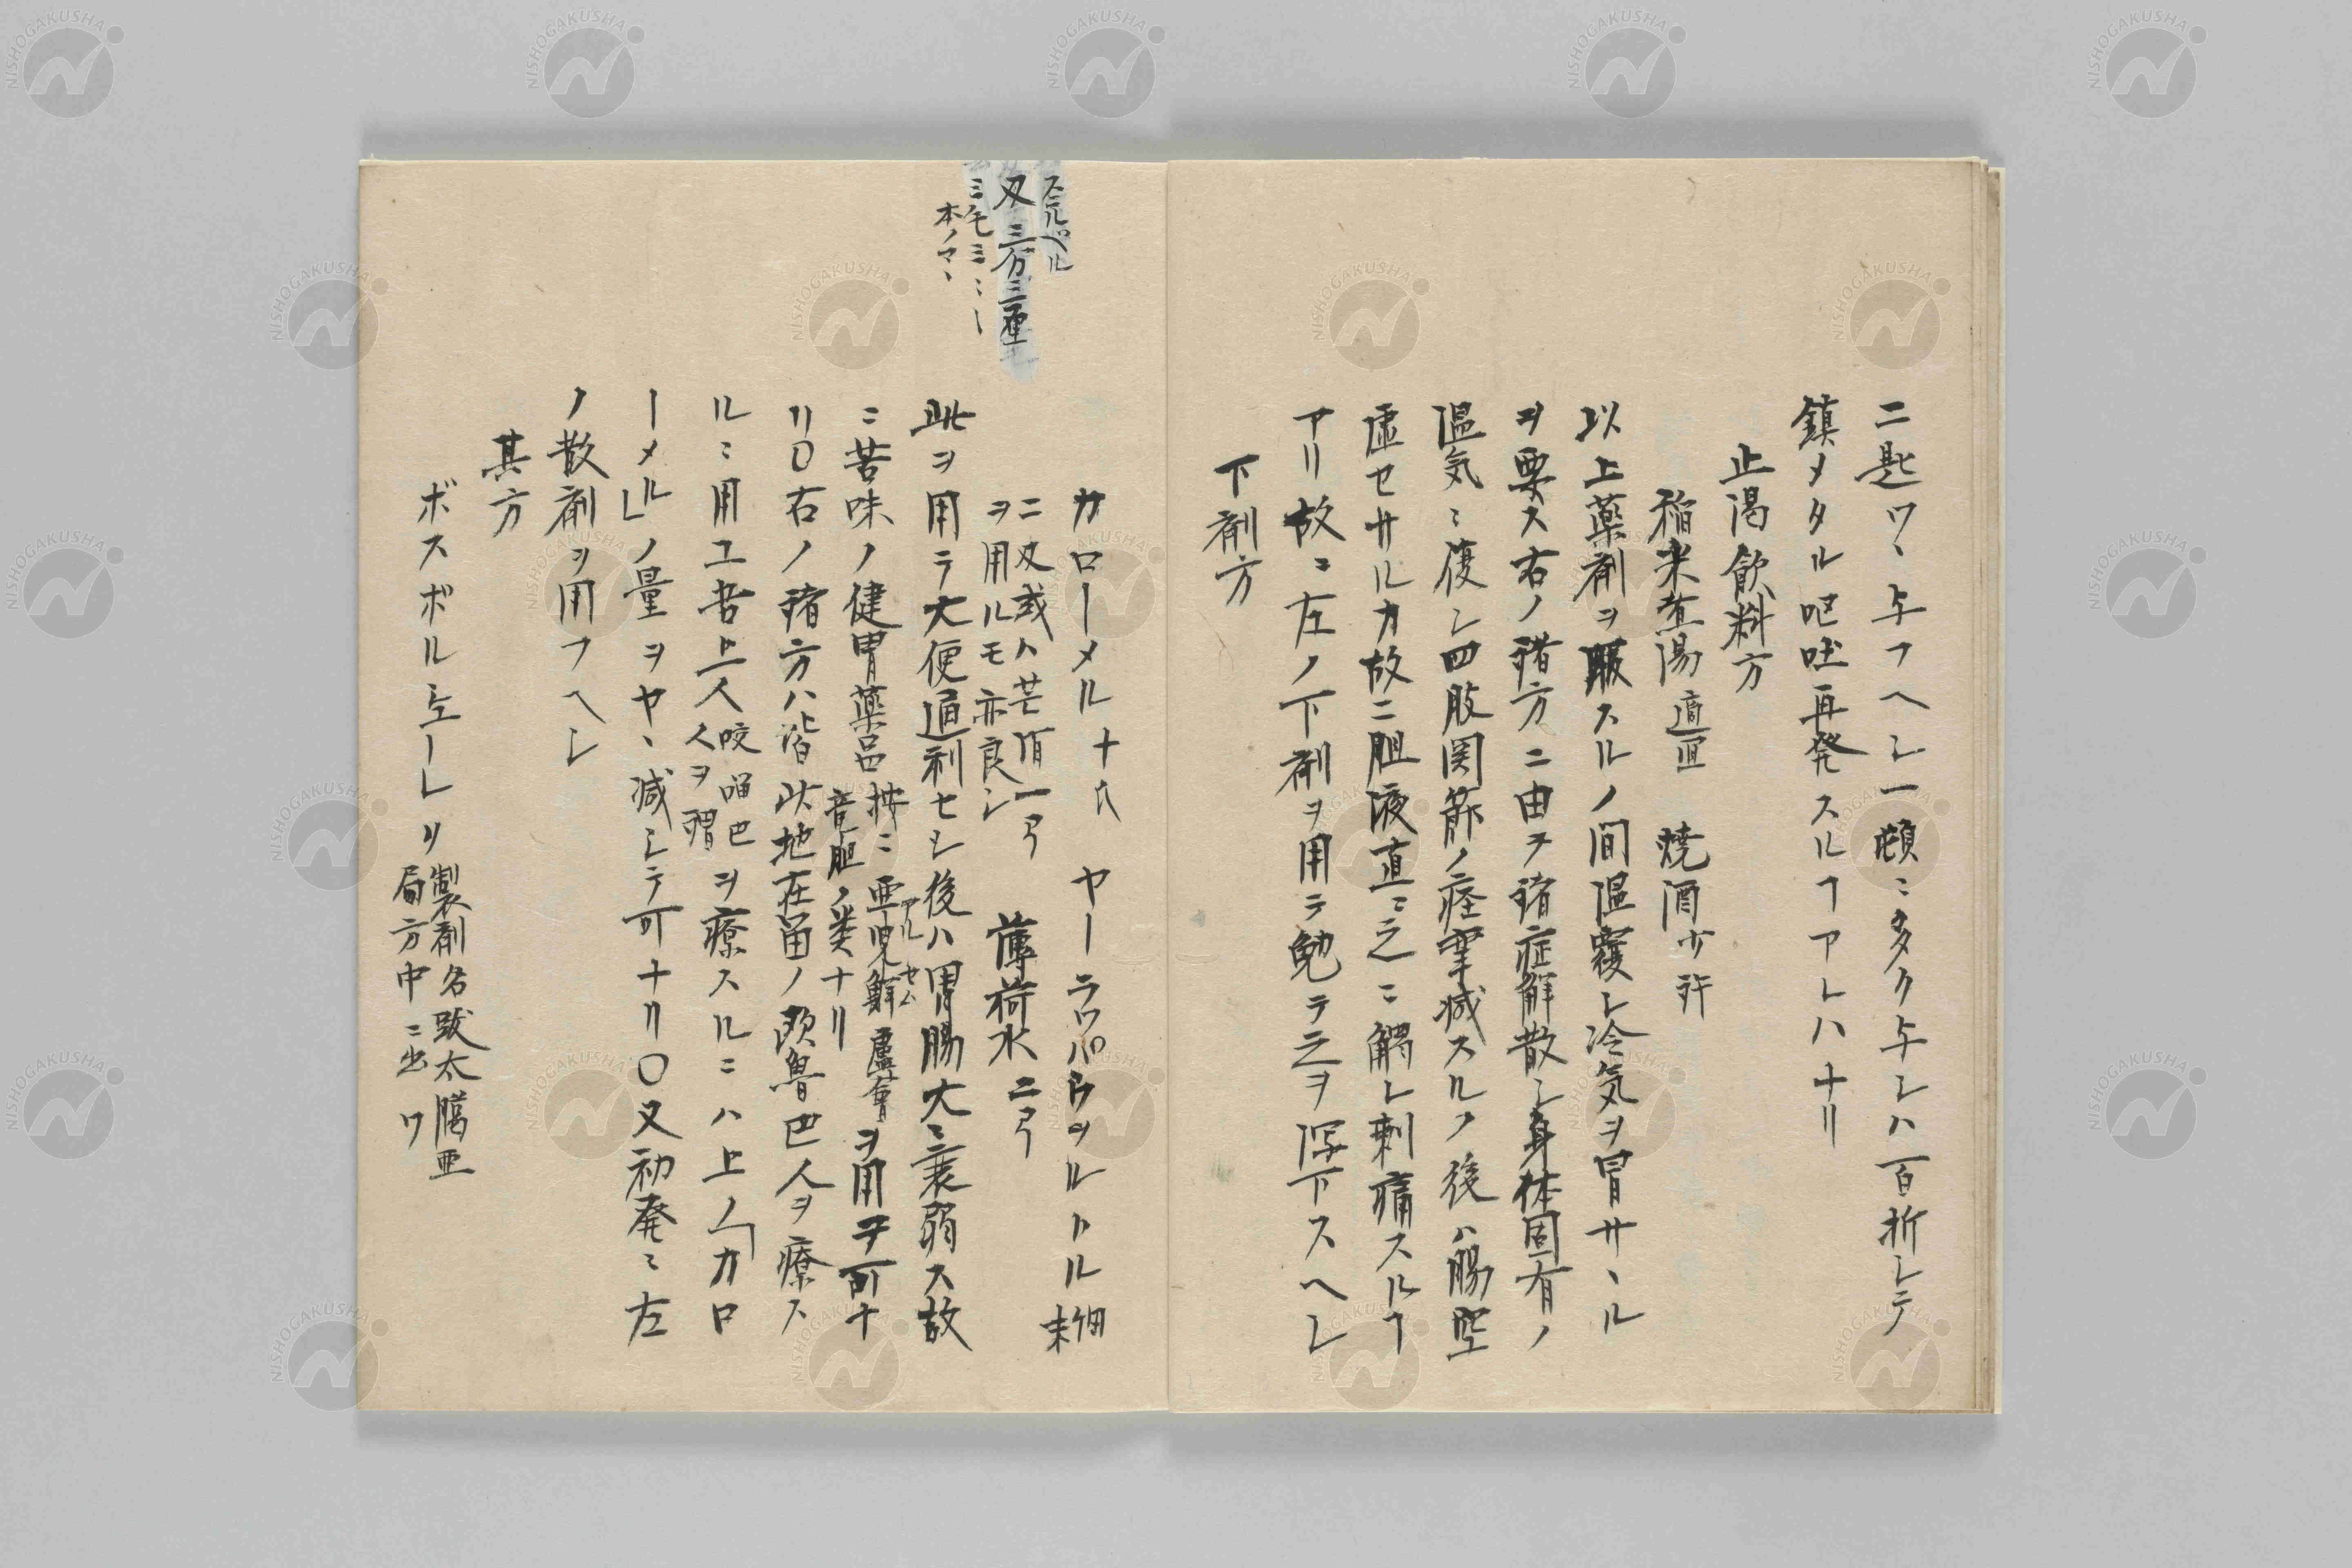 二匙ツヽ与フヘシ一頓ニ多ク与シハ百折シテ
鎮メタル吐再発スルヿアレハナリ
止渇飲料方
稲米煮湯適宜 焼酒少許
以上薬剤ヲ服スルノ間温覆シ冷気ヲ冒サヽル
ヲ要ス右ノ諸方ニ由テ諸症解散シ身体固有ノ
温気ニ復シ四肢関節ノ痙攣減スルノ後ハ腸空
虚セサルカ故ニ胆液直ニ之ニ觸レ刺痛スルヿ
アリ故ニ左ノ下剤ヲ用テ勉テ之ヲ瀉下スヘシ
下剤方
スニルペル
又三方三厘
本ノマヽ
カローメル十六 ヤーラッパウットル細末
二又或ハ芒硝一
ヲ用ルモ亦良シ
薄荷水二
此ヲ用テ大便通利セシ後ハ胃腸大ニ衰弱ス故
ニ苦味ノ健胃薬品按ニ亜児鮮蘆薈
アルセム
竜胆ノ類ナリ
ヲ用ヲ可ナ
リ〇右ノ諸方ハ皆此地在留ノ欧魯巴人ヲ療ス
ルニ用ユ若上人咬𠺕巴
人ヲ謂
ヲ療スルニハ上ノ「カロ
ーメル」ノ量ヲヤヽ減シテ可ナリ〇又初発ニ左
ノ散剤ヲ用フヘシ
其方
製剤名跋太臈亜
局方中ニ出ツ
NISHOGAKUSHA